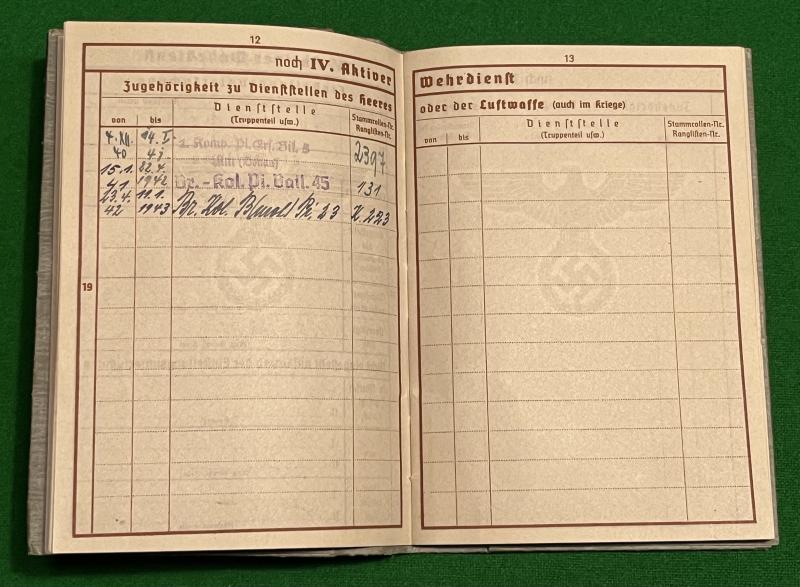 12
noch IV. Aktiver
Zugehörigkeit zu Dienststellen des Heeres
von
bis
Dienststelle
(Truppenteil usw.)
Stammrollen-Nr.
Ranglisten-Nr.
4.XII. 40
14. I. 41
2. Komp. Pi. Ers. Btl. 5
Ulm (Donau)
2397
15.1. 41
22.4. 1942
Br.-Kol. Pi. Batl. 45
131
23.4. 42
11.1. 1943
Br. Kol. B
K. 223
19
13
Wehrdienst
oder der Luftwaffe (auch im Kriege)
von
bis
Dienststelle
(Truppenteil usw.)
Stammrollen-Nr.
Ranglisten-Nr.